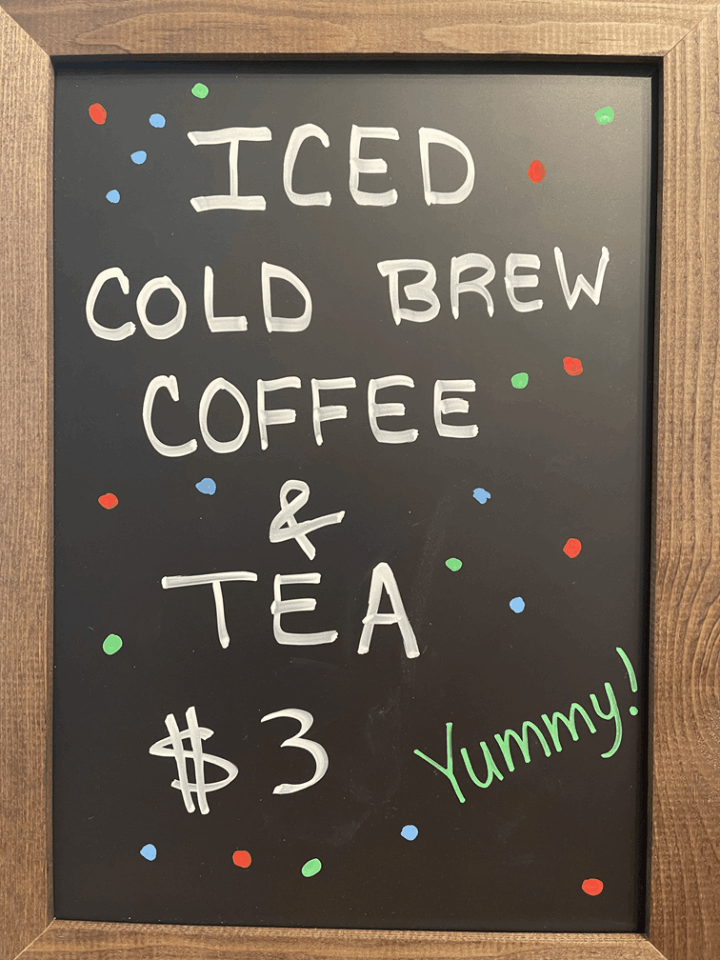 ICED
COLD BREW
COFFEE
&
TEA
$3
Yummy!